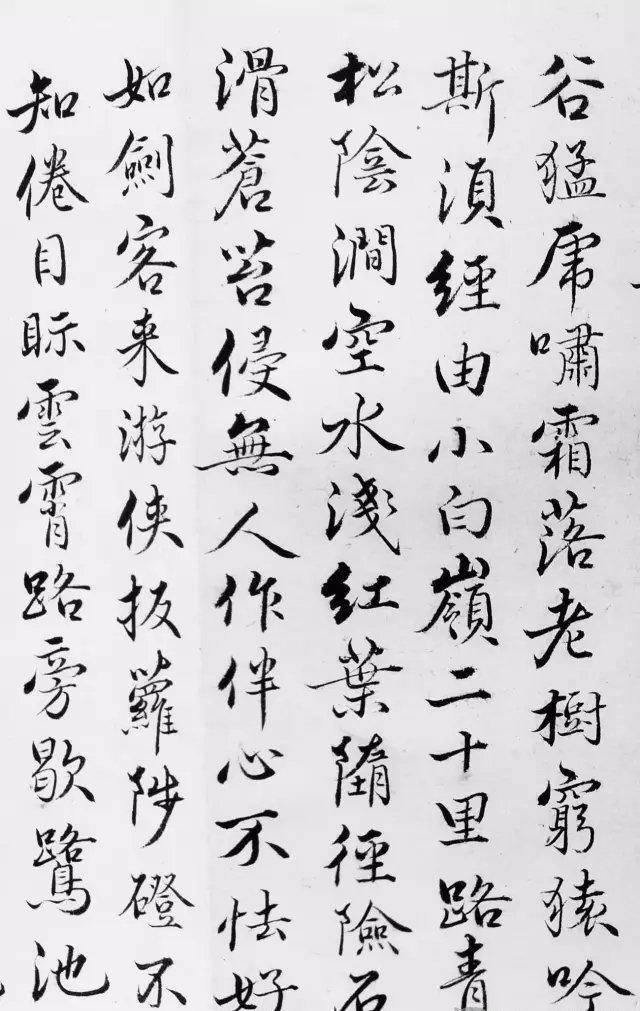 谷猛虎嘯霜落老樹窮猿吟
斯湏經由小白嶺二十里路青
松陰澗空水淺紅葉隋徑險石
滑蒼苔侵無人作伴心不怯好
如劍客來游俠扳蘿陟磴不
知倦目眎雲霄路旁歇鷺池